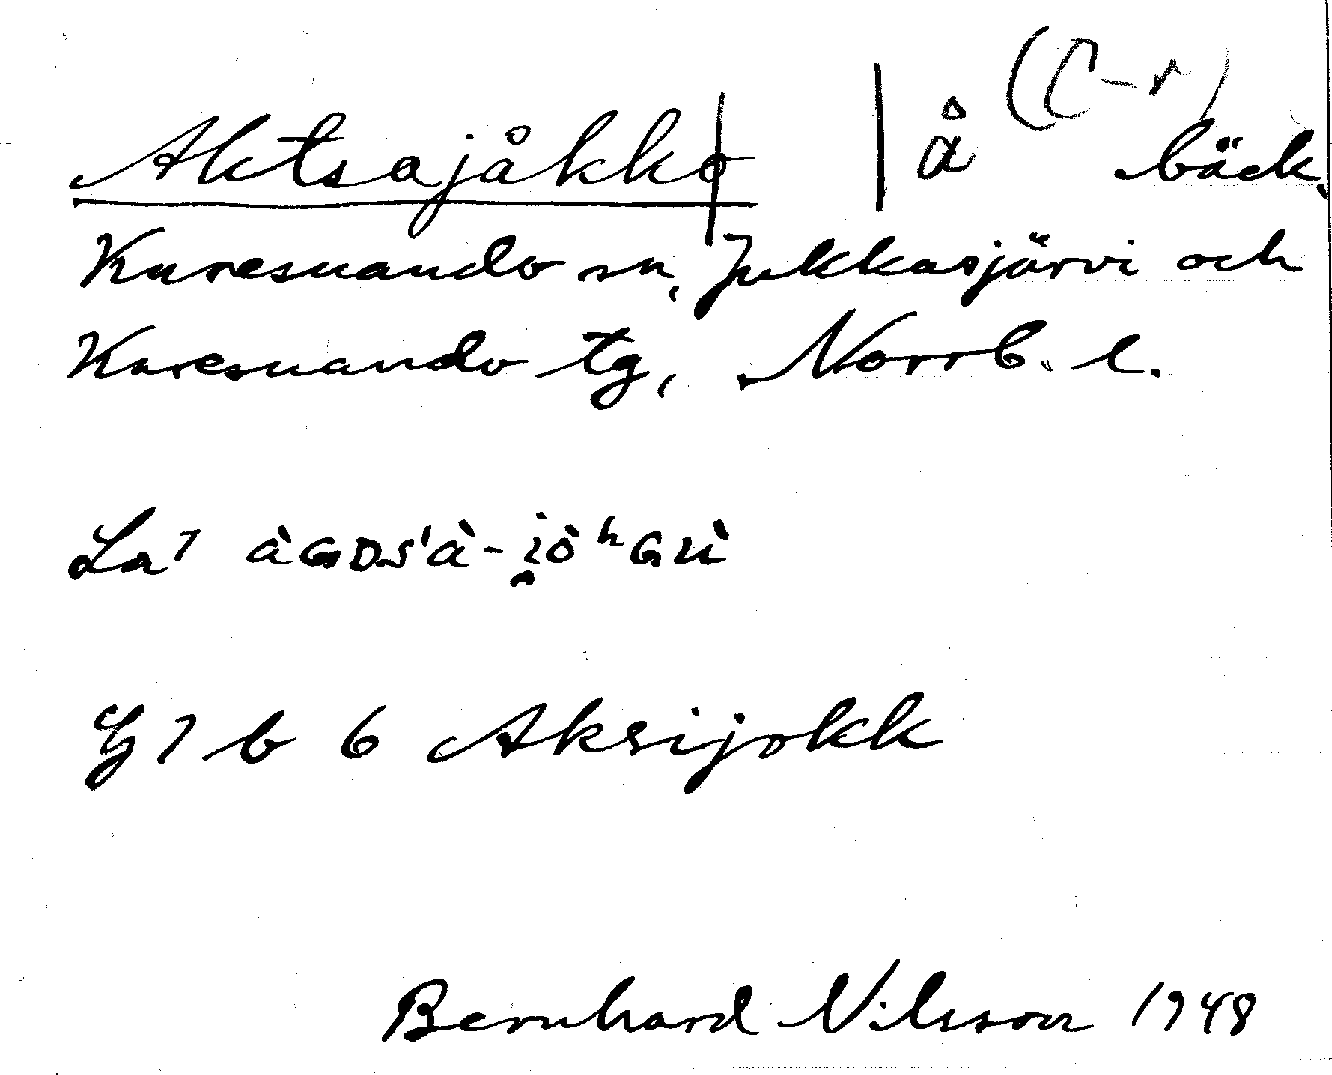 Aktsajåkko | å (C-r) bäck,
Karesuando sn, Jukkasjärvi och
Karesuando tg, Norrb. l.
La7 àGDS'à-i̯ò ʰGù
G 7 b 6 Aksijokk
Bernhard Nilsson 1948